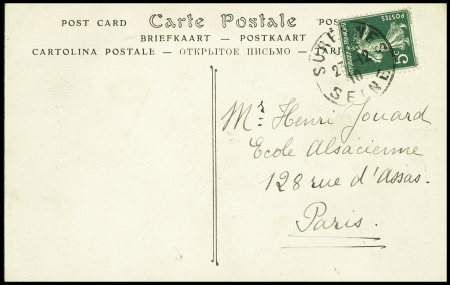 POST CARD Carte Postale
BRIEFKAART — POSTKAART
CARTOLINA POSTALE — ОТКРЫТОЕ ПИСЬМО
SURESNES
SEINE
POSTES
5
Mr. Henri Jouard
Ecole Alsacienne
128 rue d'Assas.
Paris.